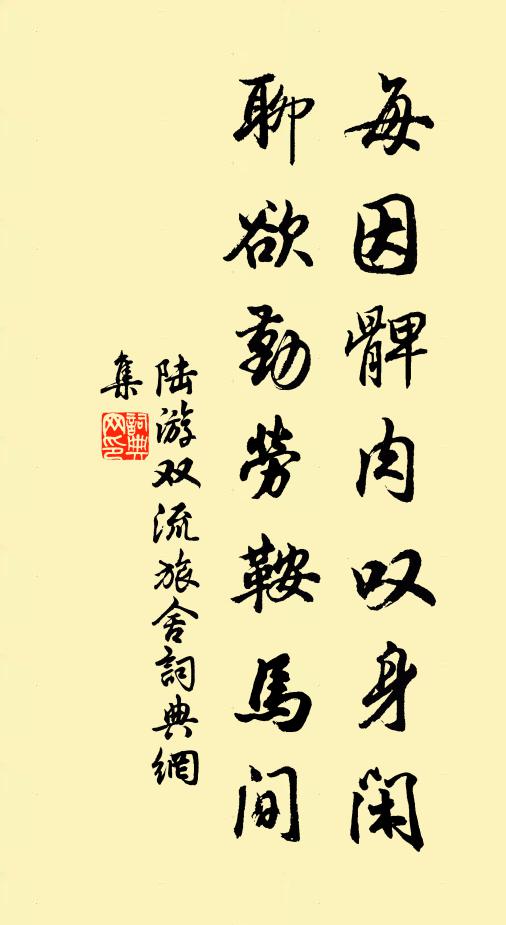 每因髀肉叹身闲
聊欲勤劳鞍馬间
陆游双流旅舍詞典網
集
詞典
网印